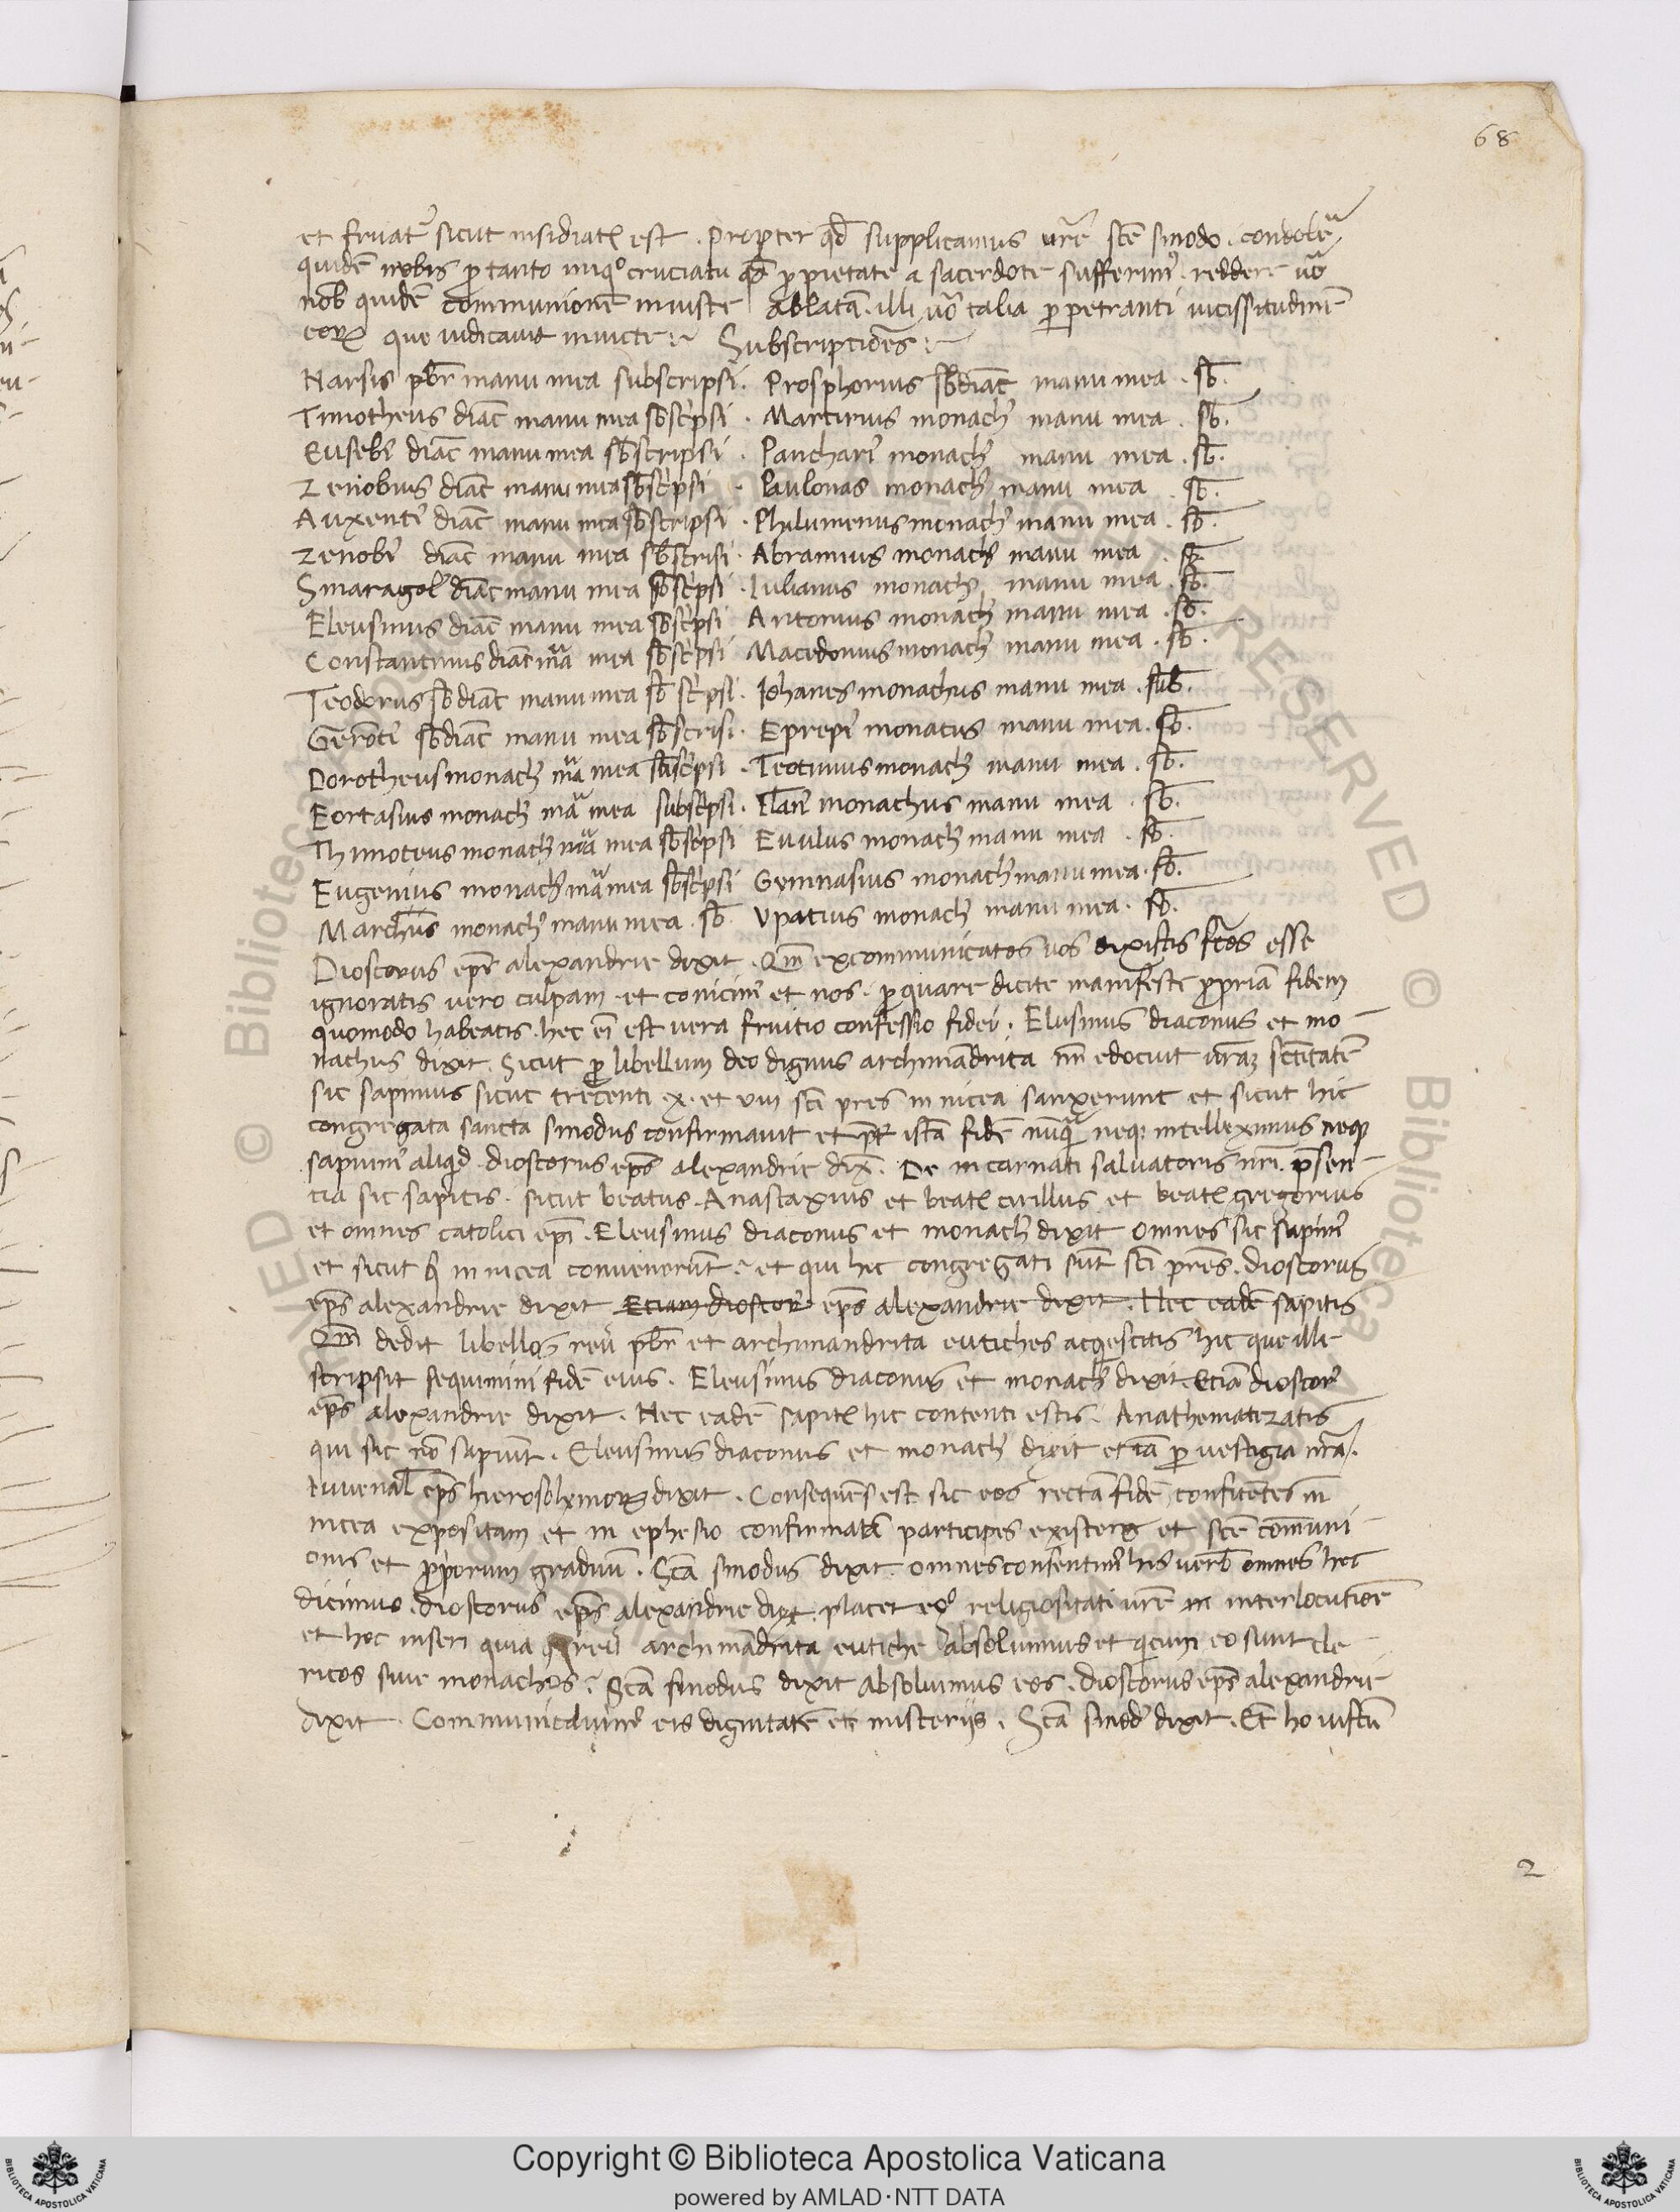 68
et fruat᷑ sicut insidiat᷑ est . Propter qd̄ supplicamus ur̄e sc̄e sinodo . condolē
quidē nobis ꝓ tanto iniqͦ cruciatu qd̄ ꝓ pietate a sacerdote sufferimꝰ . reddere uͦ
nob̄ quidē communionē iniuste Ablatā . illi uͦ talia ꝑpetranti uicissitudinē
eoꝝ que iudicauit iniuste Subscriptiones
Narsis pb̄r manu mea subscripsi . Prosphorius sb̄diāc manu mea . sb̄.
Timotheus diāc manu mea sb̄sc̓psi . Martirius monachꝰ manu mea . sb̄.
Eusebꝰ diāc manu mea sb̄scripsi . Pancharꝰ monachꝰ manu mea . sb̄.
Zenobius diāc manu mea sb̄sc̓psi . Paulonas monachꝰ manu mea . sb̄.
Auxentꝰ diāc manu mea sb̄scripsi . Philumenus monachꝰ manu mea . sb̄.
Zenobꝰ diāc manu mea sb̄scrisi . Abramius monachꝰ manu mea . sb̄.
Smaragdꝰ diāc manu mea sb̄sc̓psi . Iulianus monachꝰ manu mea . sb̄.
Eleusinus diāc manu mea sb̄sc̓psi Antonius monachꝰ manu mea . sb̄.
Constantinus diāc māa mea sb̄sc̓psi Macedonius monachꝰ manu mea . sb̄.
Teodorus sb̄diāc manu mea sb̄ sc̓psi . Iohanes monachus manu mea . sub̄.
Gerōtꝰ sb̄diāc manu mea sb̄scrisi . Eprepꝰ monacus manu mea . sb̄.
Dorotheus monachꝰ māa mea sb̄sc̓psi . Teotimus monachꝰ manu mea . sb̄.
Eortasius monachꝰ māa mea subsc̓psi . Elānꝰ monachus manu mea . sb̄.
Thimoteus monachꝰ māa mea sb̄sc̓psi Euulus monachꝰ manu mea . sb̄.
Eugenius monachꝰ māa mea sb̄sc̓psi Gymnasius monachꝰ manu mea . sb̄.
Marchus monachꝰ manu mea . sb̄ Vpatius monachꝰ manu mea . sb̄.
Dioscorus ep̄s alexandrie dixit . Qm̄ excommunicatos uos dixistis fc̄os esse
ignoratis uero culpam et conicimꝰ et nos . ꝑ quare dicite manifeste ꝓpriā fidem
quomodo habeatis . hec ei̅ est uera fruitio confessio fidei . Elusinus diaconus et mo-
nachus dixit . Sicut ꝑ libellum deo dignus archimādrita nr̄ edocuit ur̄aꝫ sc̄titatē
sic sapimus sicut trecenti x. et viij sc̄i pr̄es in nicea sanxerunt et sicut hic
congregata sancta sinodus confirmauit et pr̄t istā fidē nūqͣ neqꝫ intelleximus neqꝫ
sapuimꝰ aliqd . dioscorus ep̄s alexandrie dix̄ . De incarnati saluatoris nr̄i . p̄sen-
tia sic sapitis . sicut beatus . Anastaxius et beatꝰ cirillus et beatꝰ gregorius
et omnes catolici ep̄i . Eleusinus diaconus et monachꝰ dixit omnes sic sapimꝰ
et sicut hͥ in nicea conuenerūt et qui hic congregati sūt sc̄i pr̄es . dioscorus
ep̄s alexandrie dixit Etiam dioscorꝰ ep̄s alexandrie dixit . Hec eadē sapitis
Qm̄ dedit libellos reū pb̄r et archimandrita eutiches acqͥescitis hic que ille
scripsit sequimini fidē eius . Eleusinus diaconus et monachꝰ dixit . Etiā dioscorꝰ
ep̄s alexandrie dixit . Hec eadē sapitꝭ hic contenti estis . Anathematizatis
qui sic nō sapiūt . Eleusinus diaconus et monachꝰ dixit etiā ꝑ uestigia nr̄a .
Iuuenal̄ ep̄s hierosolymoꝝ dixit . Consequēs est sic eos rectā fidē confitētes in
nicea expositam et in ephesio confirmatā participes existere et sc̄e cōmuni-
onis et ꝓporum graduū . Sc̄a sinodus dixit . omnes consentimꝰ his uerb̄ omnes hec
dicimus . dioscorus ep̄s alexandrie dixit . placet eͦ religiositati ur̄e in interlocutiōe
et hoc inseri quia reū archimādrita eutiche absoluimus et qͥ cum eo sunt cle-
ricos siue monachos . Sc̄a sinodus dixit Absoluimus eos . dioscorus ep̄s alexandrie
dixit . Communicauimꝰ eis dignitatē et misteriis . Sc̄a sinodꝰ dixit . Et ho iustū
2
© Biblioteca Apostolica Vaticana
RESERVED © Biblioteca
Copyright © Biblioteca Apostolica Vaticana
powered by AMLAD·NTT DATA
BIBLIOTECA APOSTOLICA VATICANA
BIBLIOTECA APOSTOLICA VATICANA